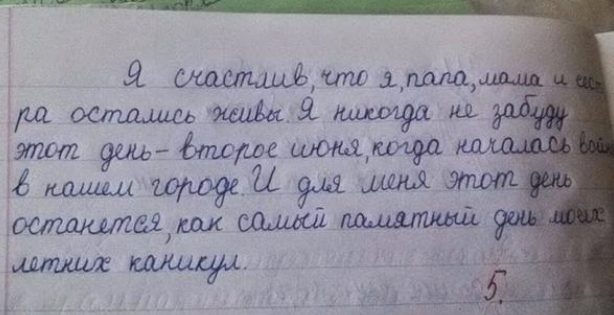 Я счастлив, что я, папа, мама и сес-
ра остались живы. Я никогда не забуду
этот день - второе июня, когда началась вой
в нашем городе. И для меня этот день
останется, как самый памятный день моих
летних каникул.
5.